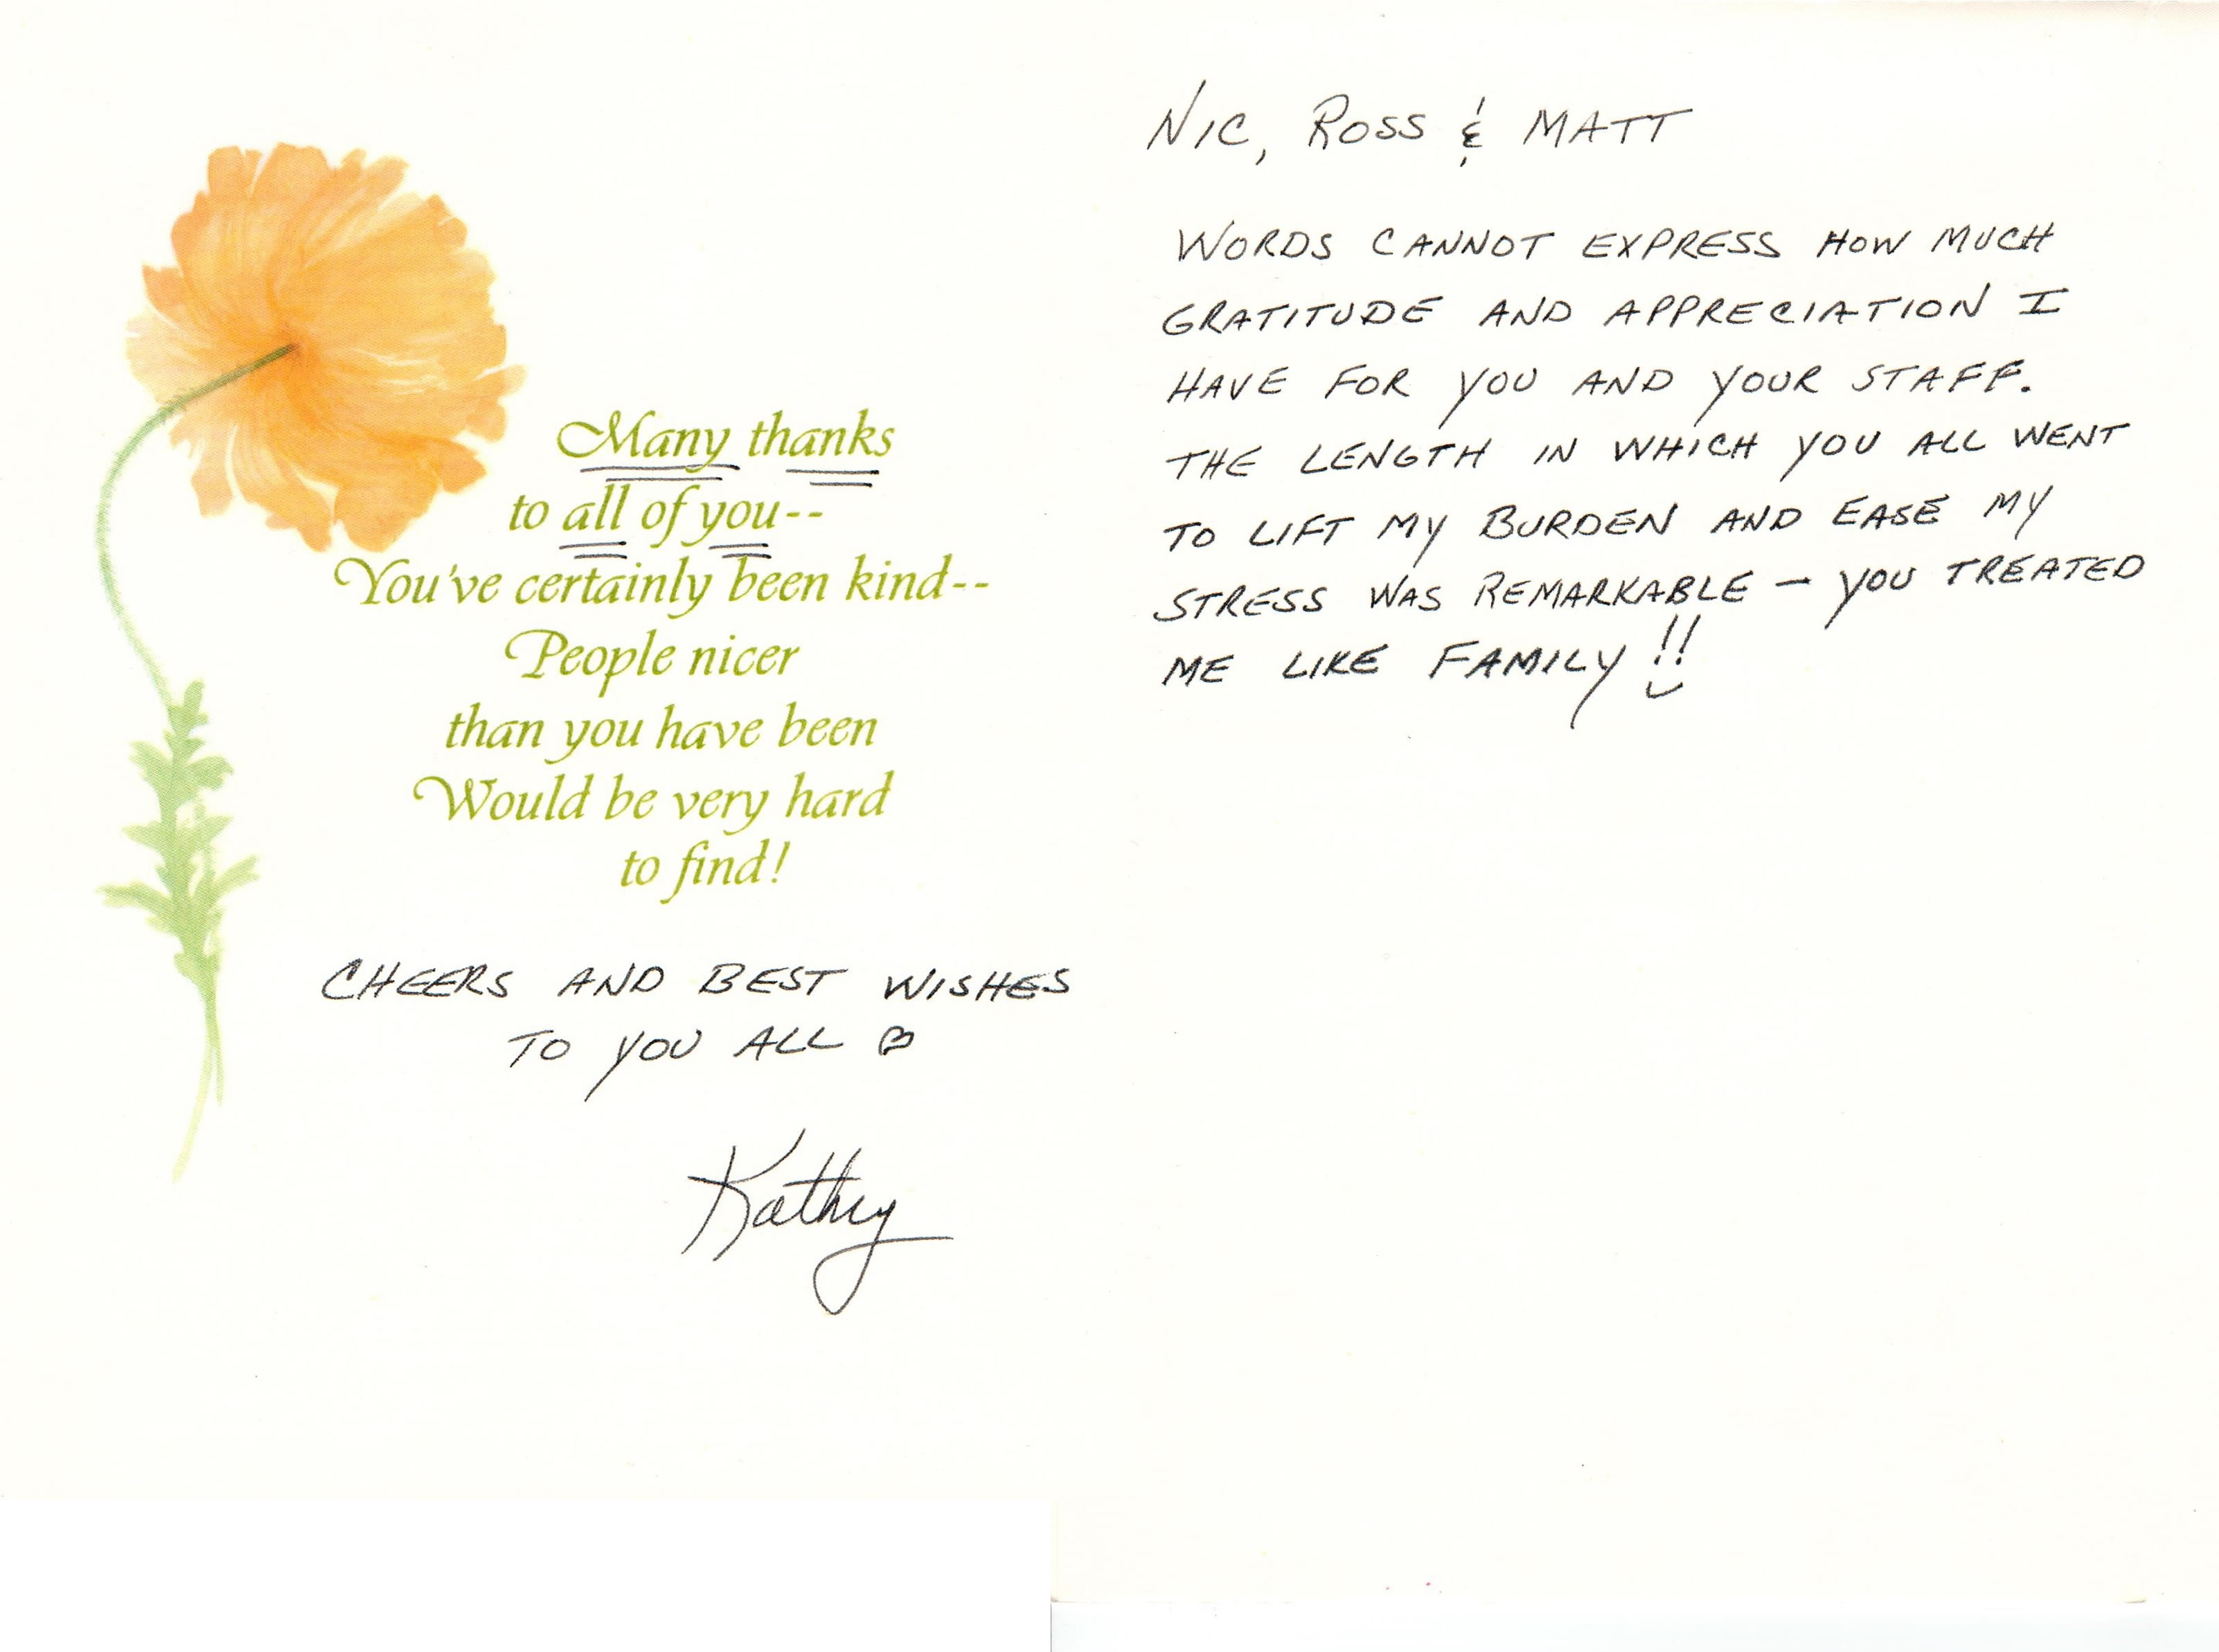 Many thanks
to all of you--
You've certainly been kind--
People nicer
than you have been
Would be very hard
to find!
CHEERS AND BEST WISHES
TO YOU ALL
Kathy
NIC, ROSS & MATT
WORDS CANNOT EXPRESS HOW MUCH
GRATITUDE AND APPRECIATION I
HAVE FOR YOU AND YOUR STAFF.
THE LENGTH IN WHICH YOU ALL WENT
TO LIFT MY BURDEN AND EASE MY
STRESS WAS REMARKABLE — YOU TREATED
ME LIKE FAMILY!!